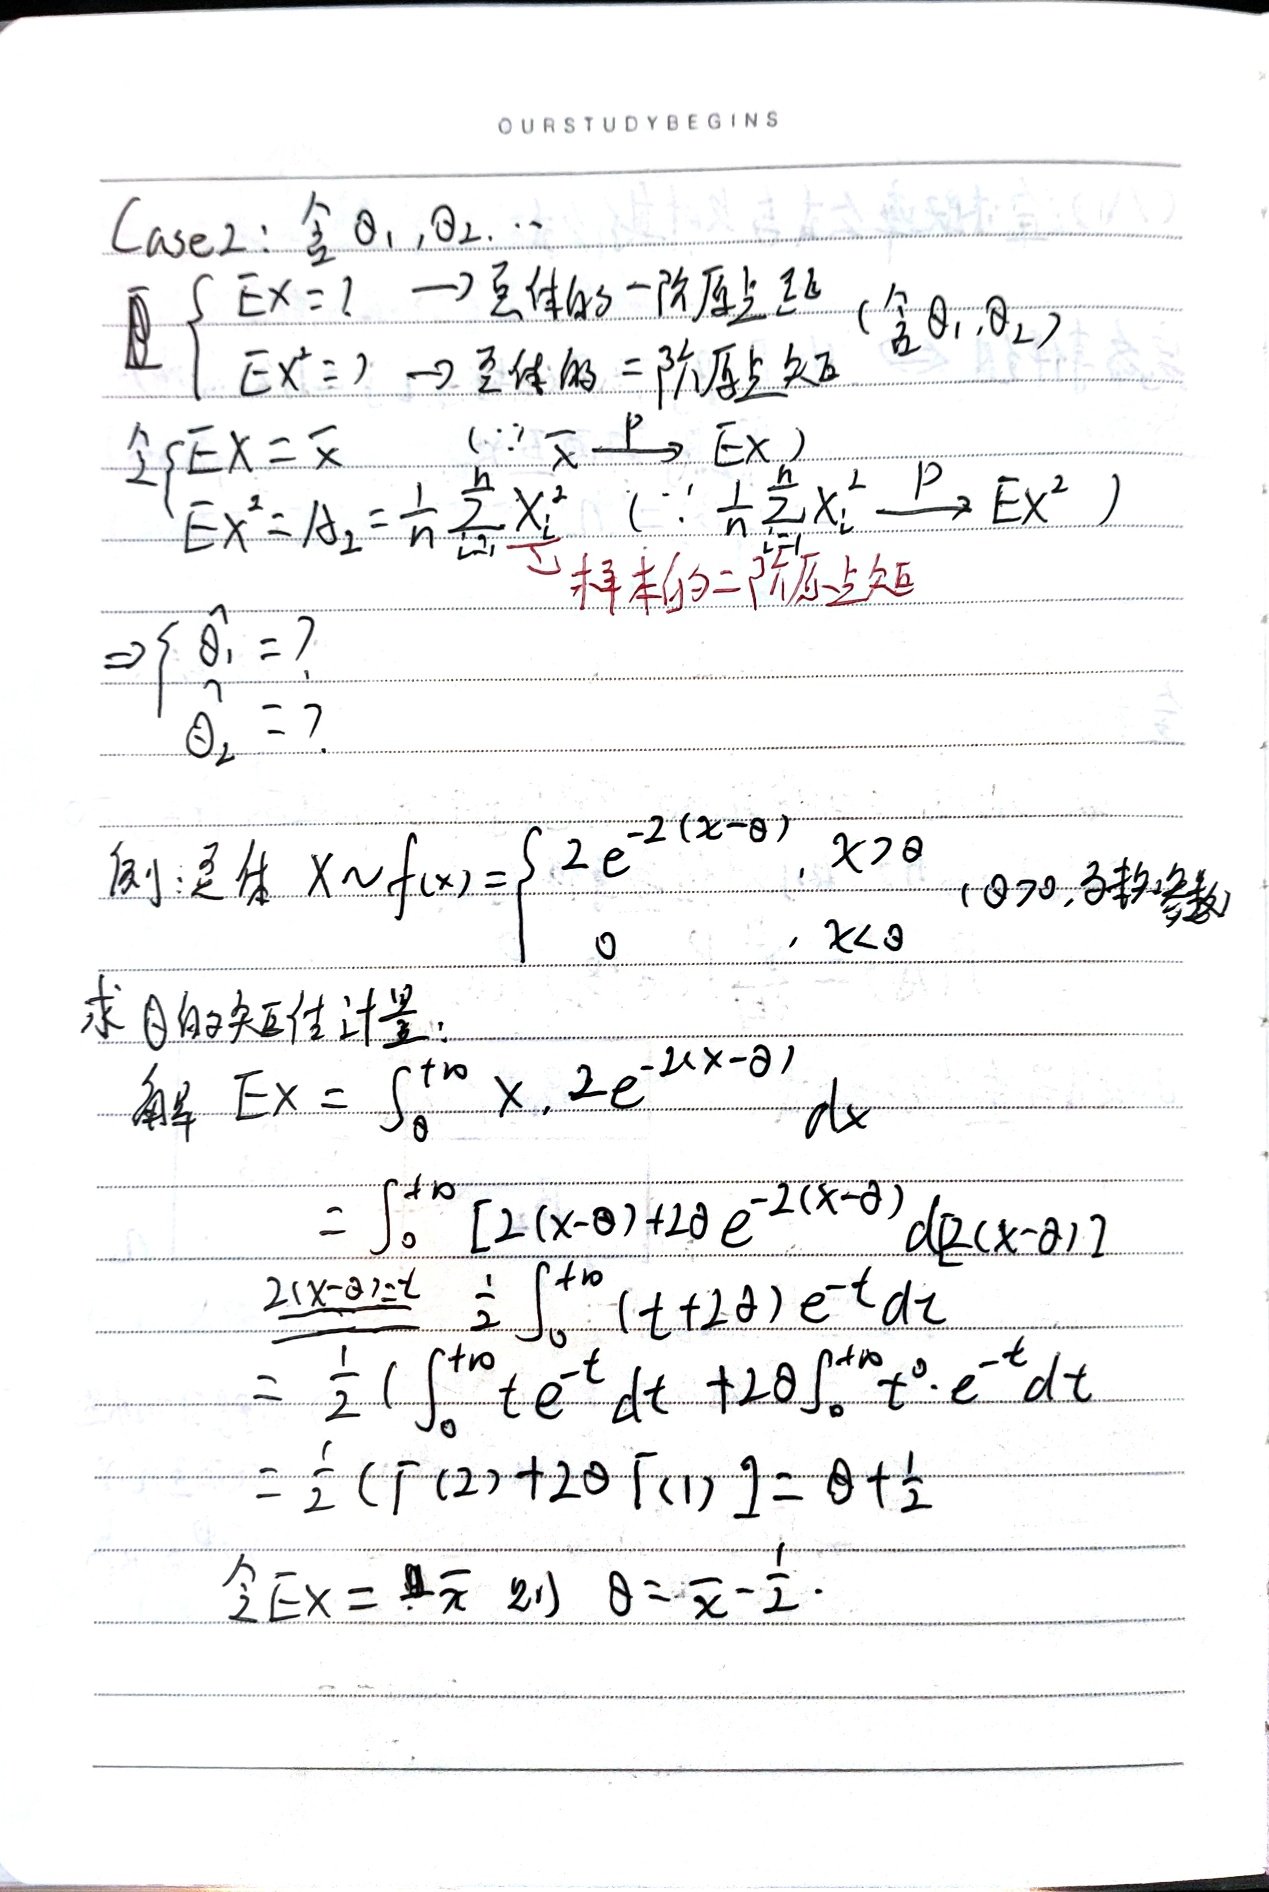 OURSTUDYBEGINS
Case2: 含 θ₁, θ₂. ..
① { EX = ? → 总体的一阶原点矩 (含 θ₁, θ₂)
EX² = ? → 总体的二阶原点矩
令 { EX = x̄ (∵ x̄ —P→ EX)
EX² = A₂ = 1/n Σⁿᵢ₌₁ Xᵢ² (∵ 1/n Σⁿᵢ₌₁ Xᵢ² —P→ EX²)
→ 样本的二阶原点矩
⇒ { θ̂₁ = ?
θ̂₂ = ?
例: 总体 X ~ f(x) = { 2e^{-2(x-θ)}, x>θ
0, x<θ (θ>0, 未知参数)
求 θ 的矩估计量:
解 EX = ∫_θ^{+∞} x. 2e^{-2(x-θ)} dx
= ∫₀^{+∞} [2(x-θ)+2θ e^{-2(x-θ)} d[2(x-θ)]
2(x-θ)=t 1/2 ∫₀^{+∞} (t+2θ) e^{-t} dt
= 1/2 ( ∫₀^{+∞} t e^{-t} dt + 2θ ∫₀^{+∞} t⁰· e^{-t} dt
= 1/2 (Γ(2) + 2θ Γ(1) ] = θ + 1/2
令 EX = x̄ 则 θ = x̄ - 1/2 .